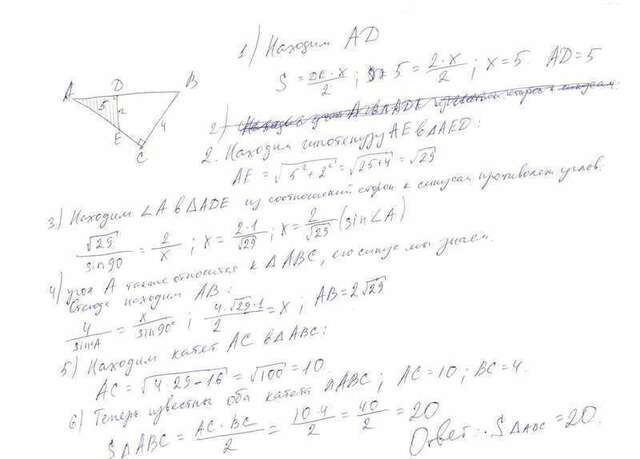 1) Находим AD
S = DE·x/2 ; 5 = 2·x/2 ; x = 5. AD = 5
A D B
5 2 4
E
C
2)
2. Находим гипотенузу AE в ΔAED:
AE = √(5² + 2²) = √(25+4) = √29
3) Находим ∠A в ΔADE из соотношений сторон к синусам противолеж. углов.
√29/sin90 = 2/x ; x = 2·1/√29 ; x = 2/√29 (sin∠A)
4) угол A также относится к ΔABC, его синус мы знаем.
Отсюда находим AB:
4/sin∠A = x/sin90° ; 4·√29·1/2 = x ; AB = 2√29
5) Находим катет AC в ΔABC:
AC = √(4·29 − 16) = √100 = 10.
6) Теперь известны оба катета ΔABC ; AC = 10 ; BC = 4.
SΔABC = AC·BC/2 = 10·4/2 = 40/2 = 20
Ответ: SΔABC = 20.